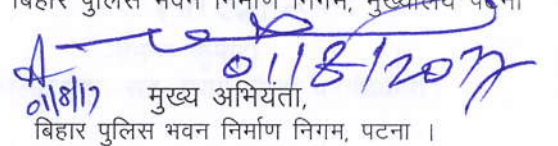 बिहार पुलिस भवन निर्माण निगम, मुख्यालय पटना
01/8/2017
01/8/17
मुख्य अभियंता,
बिहार पुलिस भवन निर्माण निगम, पटना ।